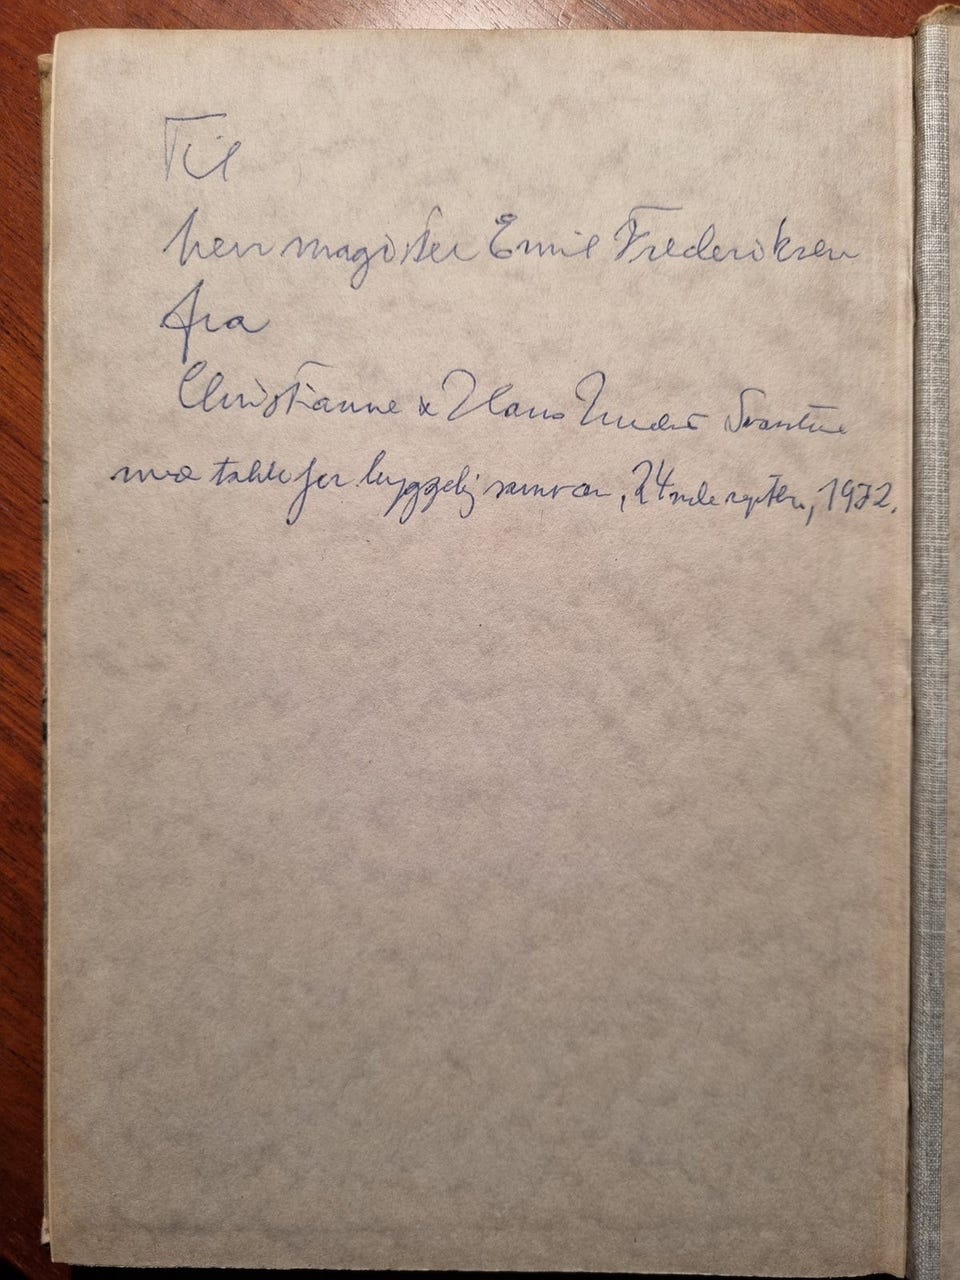 Til
herr magister Emil Frederiksen
fra
Christianne & Hans
med takk for hyggelig samvær, 24nde septbr, 1972.